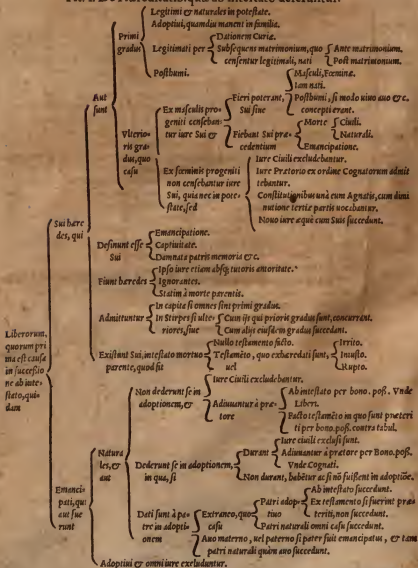 Legitimi & naturales in potestate.
Adoptiui, quamdiu manent in familia.
Primi gradus
Dationem Curiæ.
Legitimati per
Subsequens matrimonium, quo censentur legitimali, nati
Ante matrimonium.
Post matrimonium.
Postbumi.
Aut sunt
Masculi, Fœminæ.
Iam nati.
Fieri poterant, Sui siue
Postbumi, si modo uiuo auo &c. concepti erant.
Vlterioris gradus, quo casu
Ex masculis progeniti censebantur iure Sui &
Fiebant Sui præcedentium
Morte
Ciuili.
Naturali.
Emancipatione.
Ex fœminis progeniti non censebantur iure Sui, quia nec in potestate, sed
Iure Ciuili excludebantur.
Iure Prætorio ex ordine Cognatorum admittebantur.
Constitutionibus unà cum Agnatis, cum diminutione tertie partis uocabantur.
Nouo iure æquè cum Suis succedunt.
Sui hæredes, qui
Desinunt esse Sui
Emancipatione.
Captiuitate.
Damnata patris memoria &c.
Fiunt hæredes
Ipso iure etiam absq; tutoris autoritate.
Ignorantes.
Statim à morte parentis.
Admittuntur
In capita si omnes sint primi gradus.
In Stirpes si ulteriores, siue
Cum ijs qui prioris gradus sunt, concurrant.
Cum alijs eiusdem gradus succedant.
Existant Sui, intestato mortuo parente, quod fit
Nullo testamento facto.
Testamēto, quo exhæredati sunt, uel
Irrito.
Iniusto.
Rupto.
Liberorum, quorum prima est causa in successione ab intestato, quidam
Emancipati, qui aut fuerunt
Naturales, & aut
Non dederunt se in adoptionem, &
Iure Ciuili excluduntur.
Adiuuantur à prætore
Ab intestato per bono. poß. Vnde Liberi.
Facto testamēto in quo sunt præteriti per bono. poß. contra tabul.
Dederunt se in adoptionem, in qua, si
Durant
Iure ciuili exclusi sunt.
Adiuuantur à prætore per Bono. poß. Vnde Cognati.
Non durant, habētur ac si nō fuissent in adoptiōe.
Dati sunt à patre in adoptionem
Extraneo, quo casu
Patri adoptiuo
Ab intestato succedunt.
Ex testamento si fuerint præteriti, non succedunt.
Patri naturali omni casu succedunt.
Auo materno, uel paterno si pater fuit emancipatus, & tam patri naturali quàm auo succedunt.
Adoptiui & omni iure excluduntur.